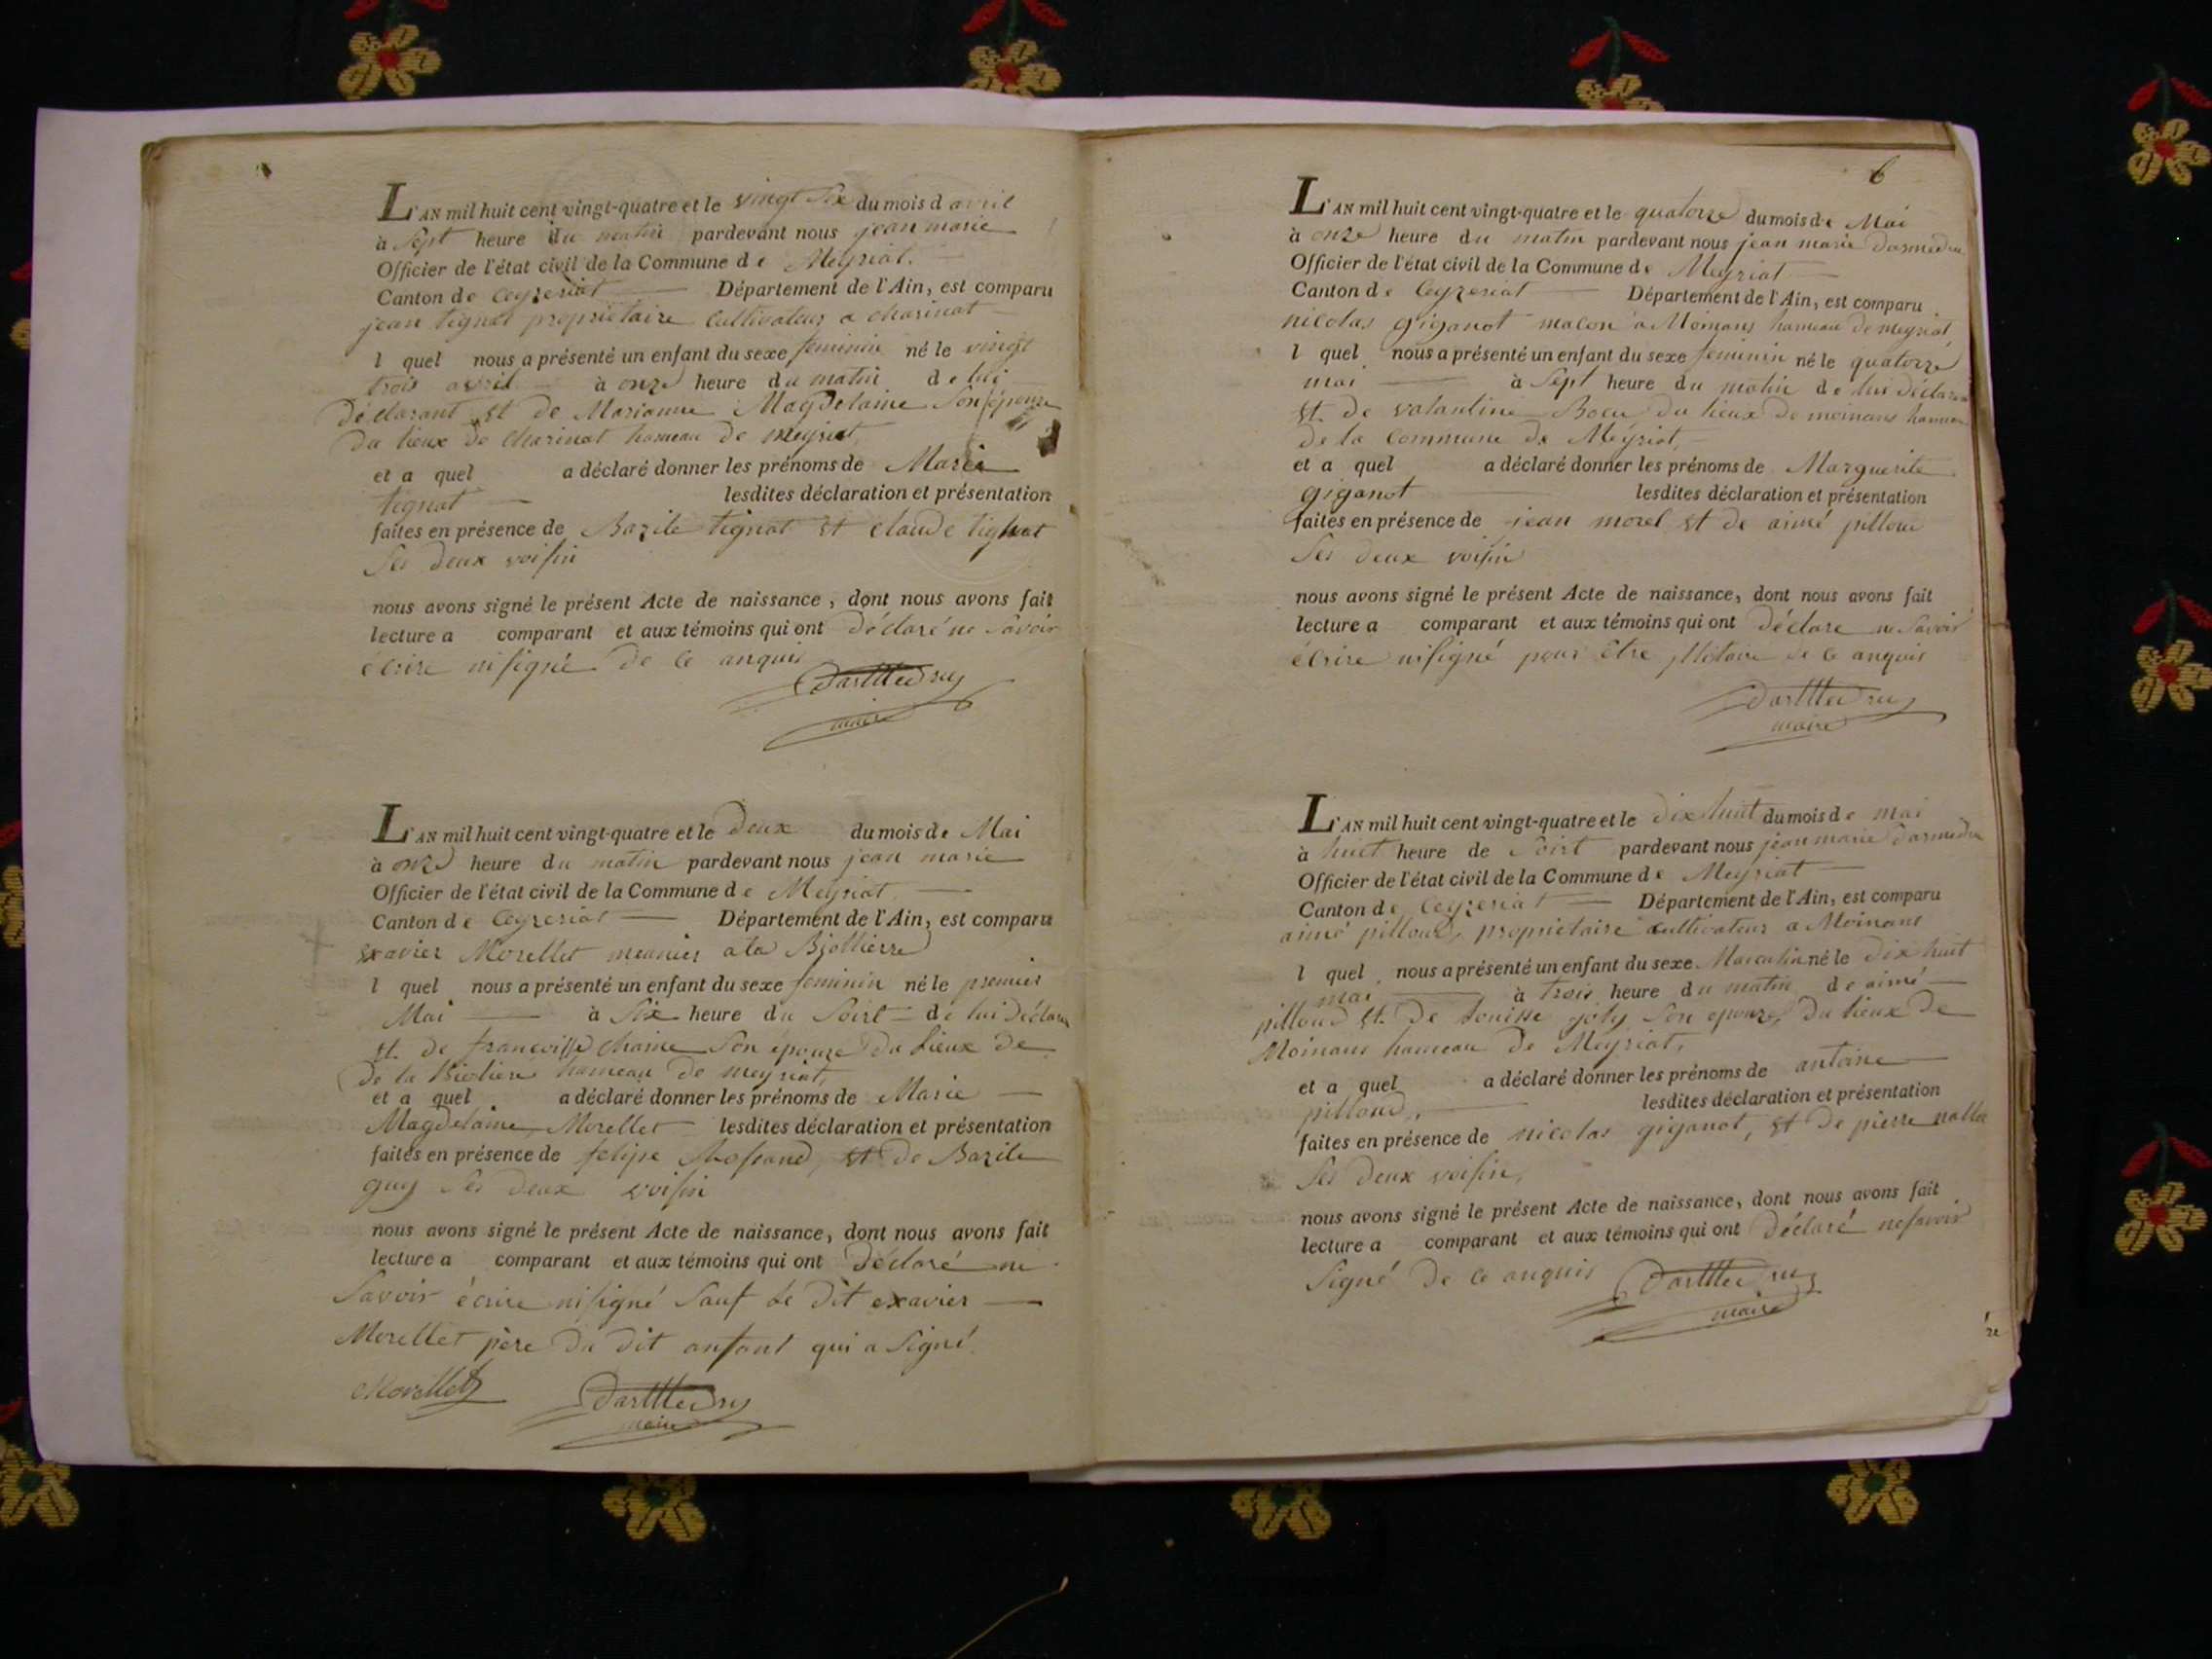 L'AN mil huit cent vingt-quatre et le vingt six du mois d avril
à sept heure du matin pardevant nous jean marie
Officier de l'état civil de la Commune de Meyriat.
Canton de Ceyzeriat Département de l'Ain, est comparu
jean tignat propriétaire cultivateur a charinat
l quel nous a présenté un enfant du sexe feminin né le vingt
trois avril à onze heure du matin de lui
déclarant et de Marianne Magdelaine son épouse
du lieux de charinat hameau de meyriat,
et a quel a déclaré donner les prénoms de Marie
tignat lesdites déclaration et présentation
faites en présence de Bazile tignat et claude tignat
ses deux voisin
nous avons signé le présent Acte de naissance, dont nous avons fait
lecture a comparant et aux témoins qui ont déclaré ne savoir
écrire ni signé de ce anquis
Darmedru
maire
L'AN mil huit cent vingt-quatre et le deux du mois de Mai
à onze heure du matin pardevant nous jean marie
Officier de l'état civil de la Commune de Meyriat
Canton de Ceyzeriat Département de l'Ain, est comparu
exavier Morellet meunier a la Bjollierre
l quel nous a présenté un enfant du sexe feminin né le premier
Mai à six heure du soirt de lui déclarant
et de francoisse chaine son épouze du lieux de
de la Biolière hameau de meyriat,
et a quel a déclaré donner les prénoms de Marie
Magdelaine Morellet lesdites déclaration et présentation
faites en présence de felipe et de Bazile
guy ses deux voisin
nous avons signé le présent Acte de naissance, dont nous avons fait
lecture a comparant et aux témoins qui ont déclaré ne
savoir écrire ni signé sauf le dit exavier
Morellet père du dit anfant qui a signé.
Morellet Darmedru
maire
6
L'AN mil huit cent vingt-quatre et le quatorze du mois de Mai
à onze heure du matin pardevant nous jean marie darmedru
Officier de l'état civil de la Commune de Meyriat
Canton de Ceyzeriat Département de l'Ain, est comparu
nicolas giganot macon a Moinans hameau de meyriat
l quel nous a présenté un enfant du sexe feminin né le quatorze
mai à sept heure du matin de lui déclarant
et de valantine Bocu du lieux de moinans hameau
de la commune de Meyriat,
et a quel a déclaré donner les prénoms de Marguerite
giganot lesdites déclaration et présentation
faites en présence de jean morel et de aimé pilloud
ses deux voisin
nous avons signé le présent Acte de naissance, dont nous avons fait
lecture a comparant et aux témoins qui ont déclare ne savoir
écrire ni signé pour être de ce anquis
Darmedru
maire
L'AN mil huit cent vingt-quatre et le dix huit du mois de mai
à huit heure de soirt pardevant nous jean marie darmedru
Officier de l'état civil de la Commune de Meyriat
Canton de Ceyzeriat Département de l'Ain, est comparu
aimé pilloud, propriétaire cultivateur a Moinans
l quel nous a présenté un enfant du sexe Masculin né le dix huit
mai à trois heure du matin de aimé
pilloud et de Louisse joly son epouze, du lieux de
Moinans hameau de Meyriat,
et a quel a déclaré donner les prénoms de antoine
pilloud, lesdites déclaration et présentation
faites en présence de nicolas giganot, et de pierre nallet
ses deux voisin,
nous avons signé le présent Acte de naissance, dont nous avons fait
lecture a comparant et aux témoins qui ont déclaré ne savoir
signé de ce anquis Darmedru
maire